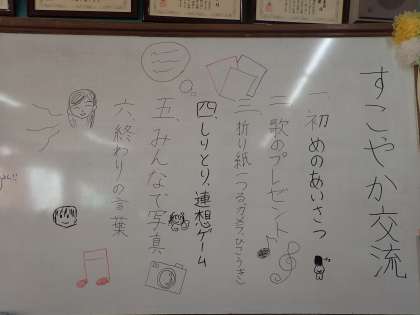 すこやか交流
一、初めのあいさつ
二、歌のプレゼント
三、折り紙
四、しりとり、連想ゲーム
五、みんなで写真
六、終わりの言葉